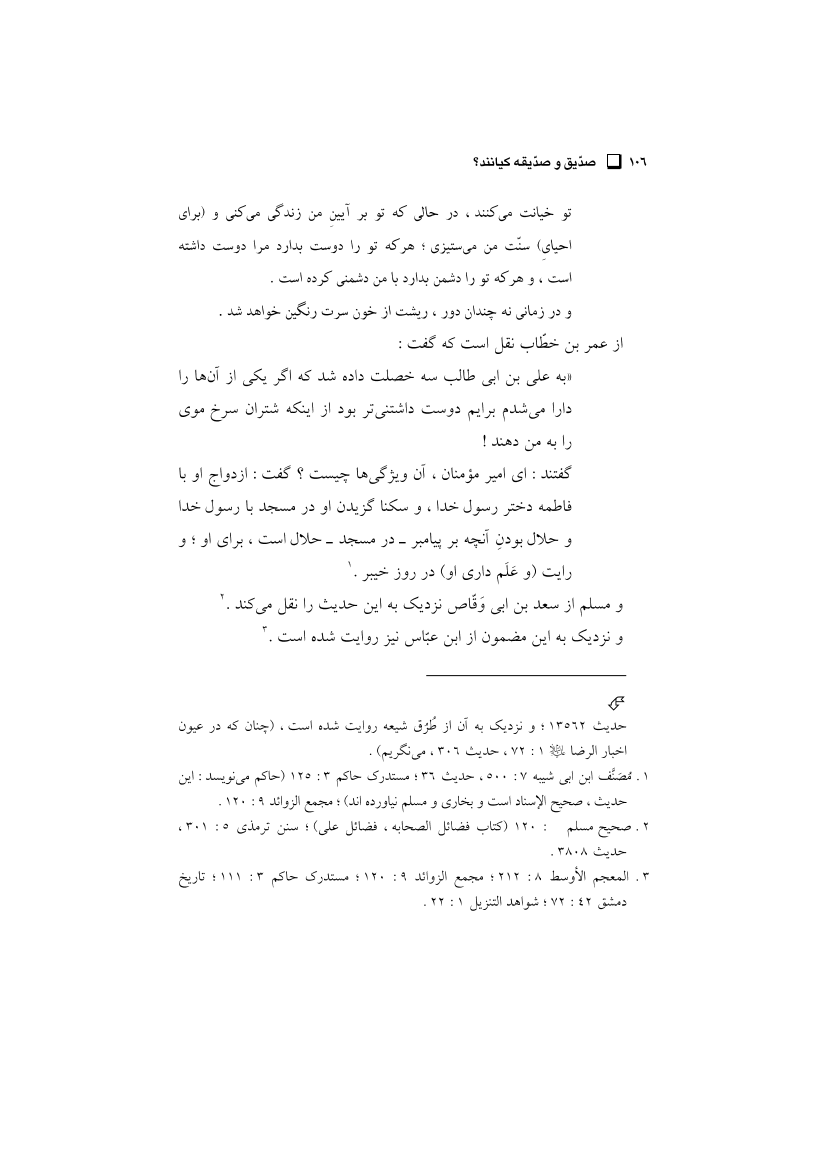 ۱۰۶ ❏ صدّیق و صدّیقه کیانند؟
تو خیانت می‌کنند ، در حالی که تو بر آیینِ من زندگی می‌کنی و (برای
احیایِ) سنّت من می‌ستیزی ؛ هرکه تو را دوست بدارد مرا دوست داشته
است ، و هرکه تو را دشمن بدارد با من دشمنی کرده است .
و در زمانی نه چندان دور ، ریشت از خون سرت رنگین خواهد شد .
از عمر بن خطّاب نقل است که گفت :
«به علی بن ابی طالب سه خصلت داده شد که اگر یکی از آن‌ها را
دارا می‌شدم برایم دوست داشتنی‌تر بود از اینکه شتران سرخ موی
را به من دهند !
گفتند : ای امیر مؤمنان ، آن ویژگی‌ها چیست ؟ گفت : ازدواج او با
فاطمه دختر رسول خدا ، و سکنا گزیدن او در مسجد با رسول خدا
و حلال بودنِ آنچه بر پیامبر ـ در مسجد ـ حلال است ، برای او ؛ و
رایت (و عَلَم داری او) در روز خیبر .۱
و مسلم از سعد بن ابی وَقّاص نزدیک به این حدیث را نقل می‌کند .۲
و نزدیک به این مضمون از ابن عبّاس نیز روایت شده است .۳
حدیث ۱۳۵۶۲ ؛ و نزدیک به آن از طُرُق شیعه روایت شده است ، (چنان که در عیون
اخبار الرضا ۱ : ۷۲ ، حدیث ۳۰۶ ، می‌نگریم) .
۱ . مُصَنَّف ابن ابی شیبه ۷ : ۵۰۰ ، حدیث ۳۶ ؛ مستدرک حاکم ۳ : ۱۲۵ (حاکم می‌نویسد : این
حدیث ، صحیح الإسناد است و بخاری و مسلم نیاورده اند) ؛ مجمع الزوائد ۹ : ۱۲۰ .
۲ . صحیح مسلم : ۱۲۰ (کتاب فضائل الصحابه ، فضائل علی) ؛ سنن ترمذی ۵ : ۳۰۱ ،
حدیث ۳۸۰۸ .
۳ . المعجم الأوسط ۸ : ۲۱۲ ؛ مجمع الزوائد ۹ : ۱۲۰ ؛ مستدرک حاکم ۳ : ۱۱۱ ؛ تاریخ
دمشق ٤٢ : ۷۲ ؛ شواهد التنزیل ۱ : ۲۲ .